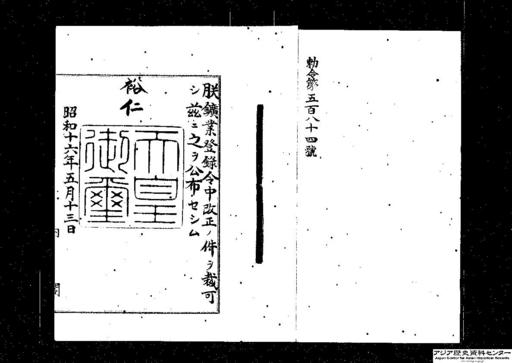 勅令第五百八十四號
朕鑛業登錄令中改正ノ件ヲ裁可
シ茲ニ之ヲ公布セシム
裕仁
天皇御璽
昭和十六年五月十三日
内閣
アジア歴史資料センター
Japan Center for Asian Historical Records